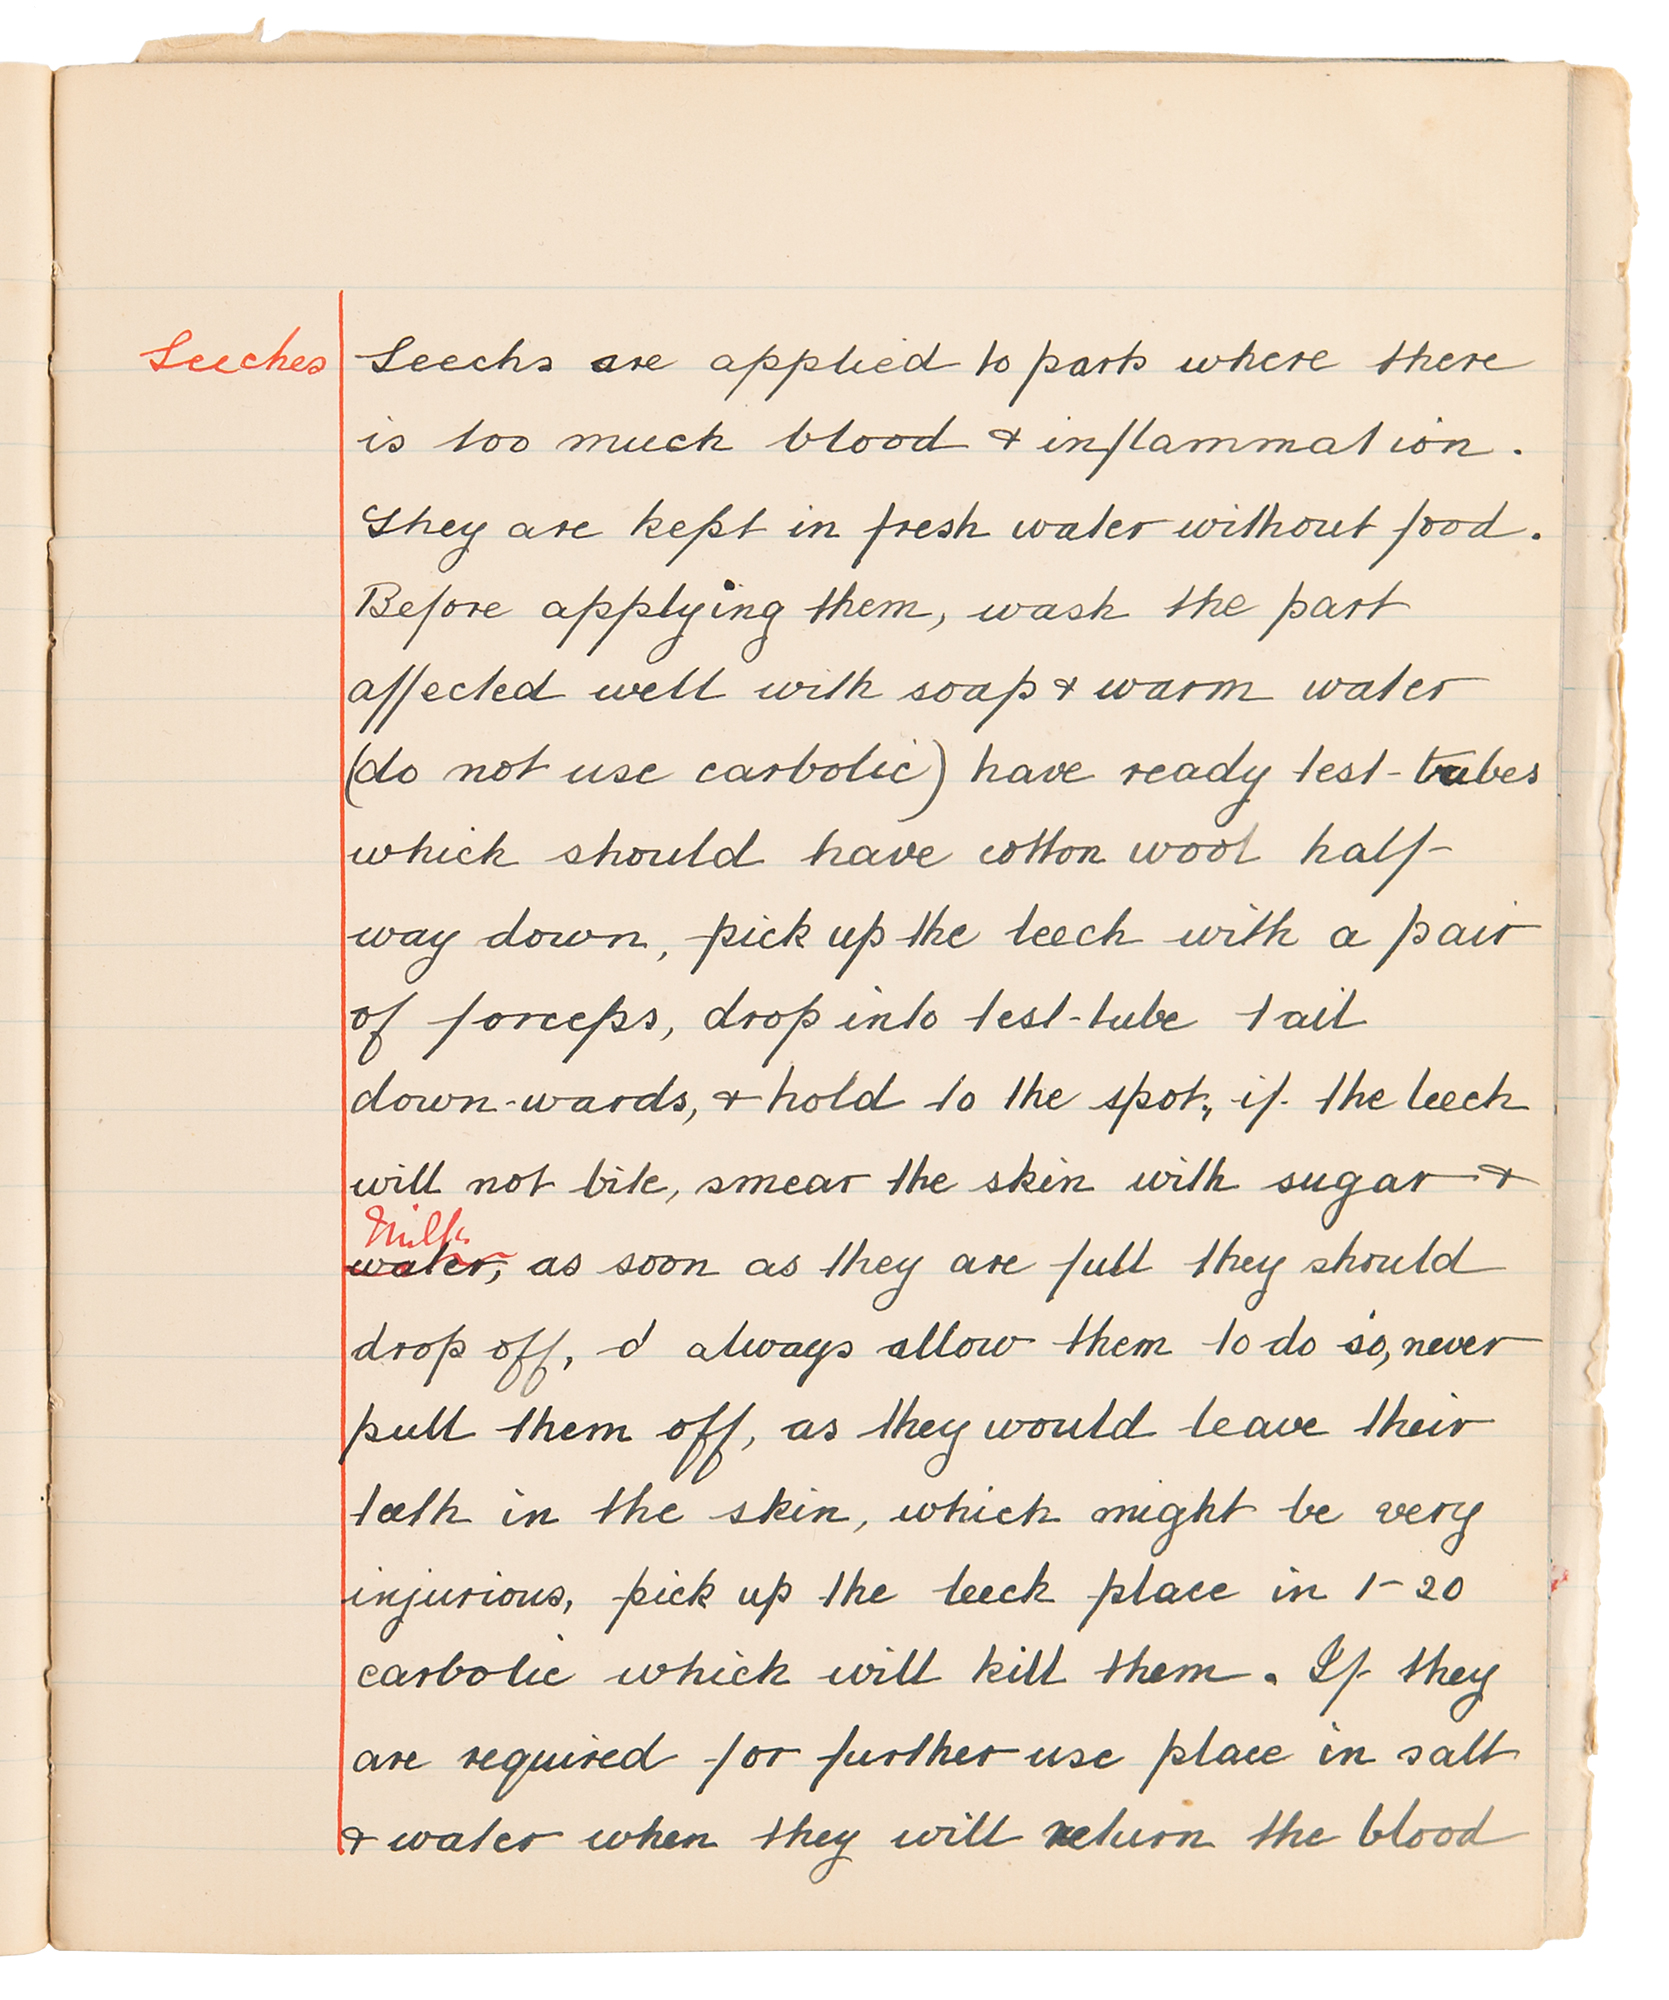 Leeches
Leechs are applied to parts where there
is too much blood & inflammation.
They are kept in fresh water without food.
Before applying them, wash the part
affected well with soap & warm water
(do not use carbolic) have ready test-tubes
which should have cotton wool half-
way down, pick up the leech with a pair
of forceps, drop into test-tube tail
down-wards, & hold to the spot, if the leech
will not bite, smear the skin with sugar &
Milk
water, as soon as they are full they should
drop off, & always allow them to do so, never
pull them off, as they would leave their
teeth in the skin, which might be very
injurious, pick up the leech place in 1-20
carbolic which will kill them. If they
are required for further use place in salt
& water when they will return the blood